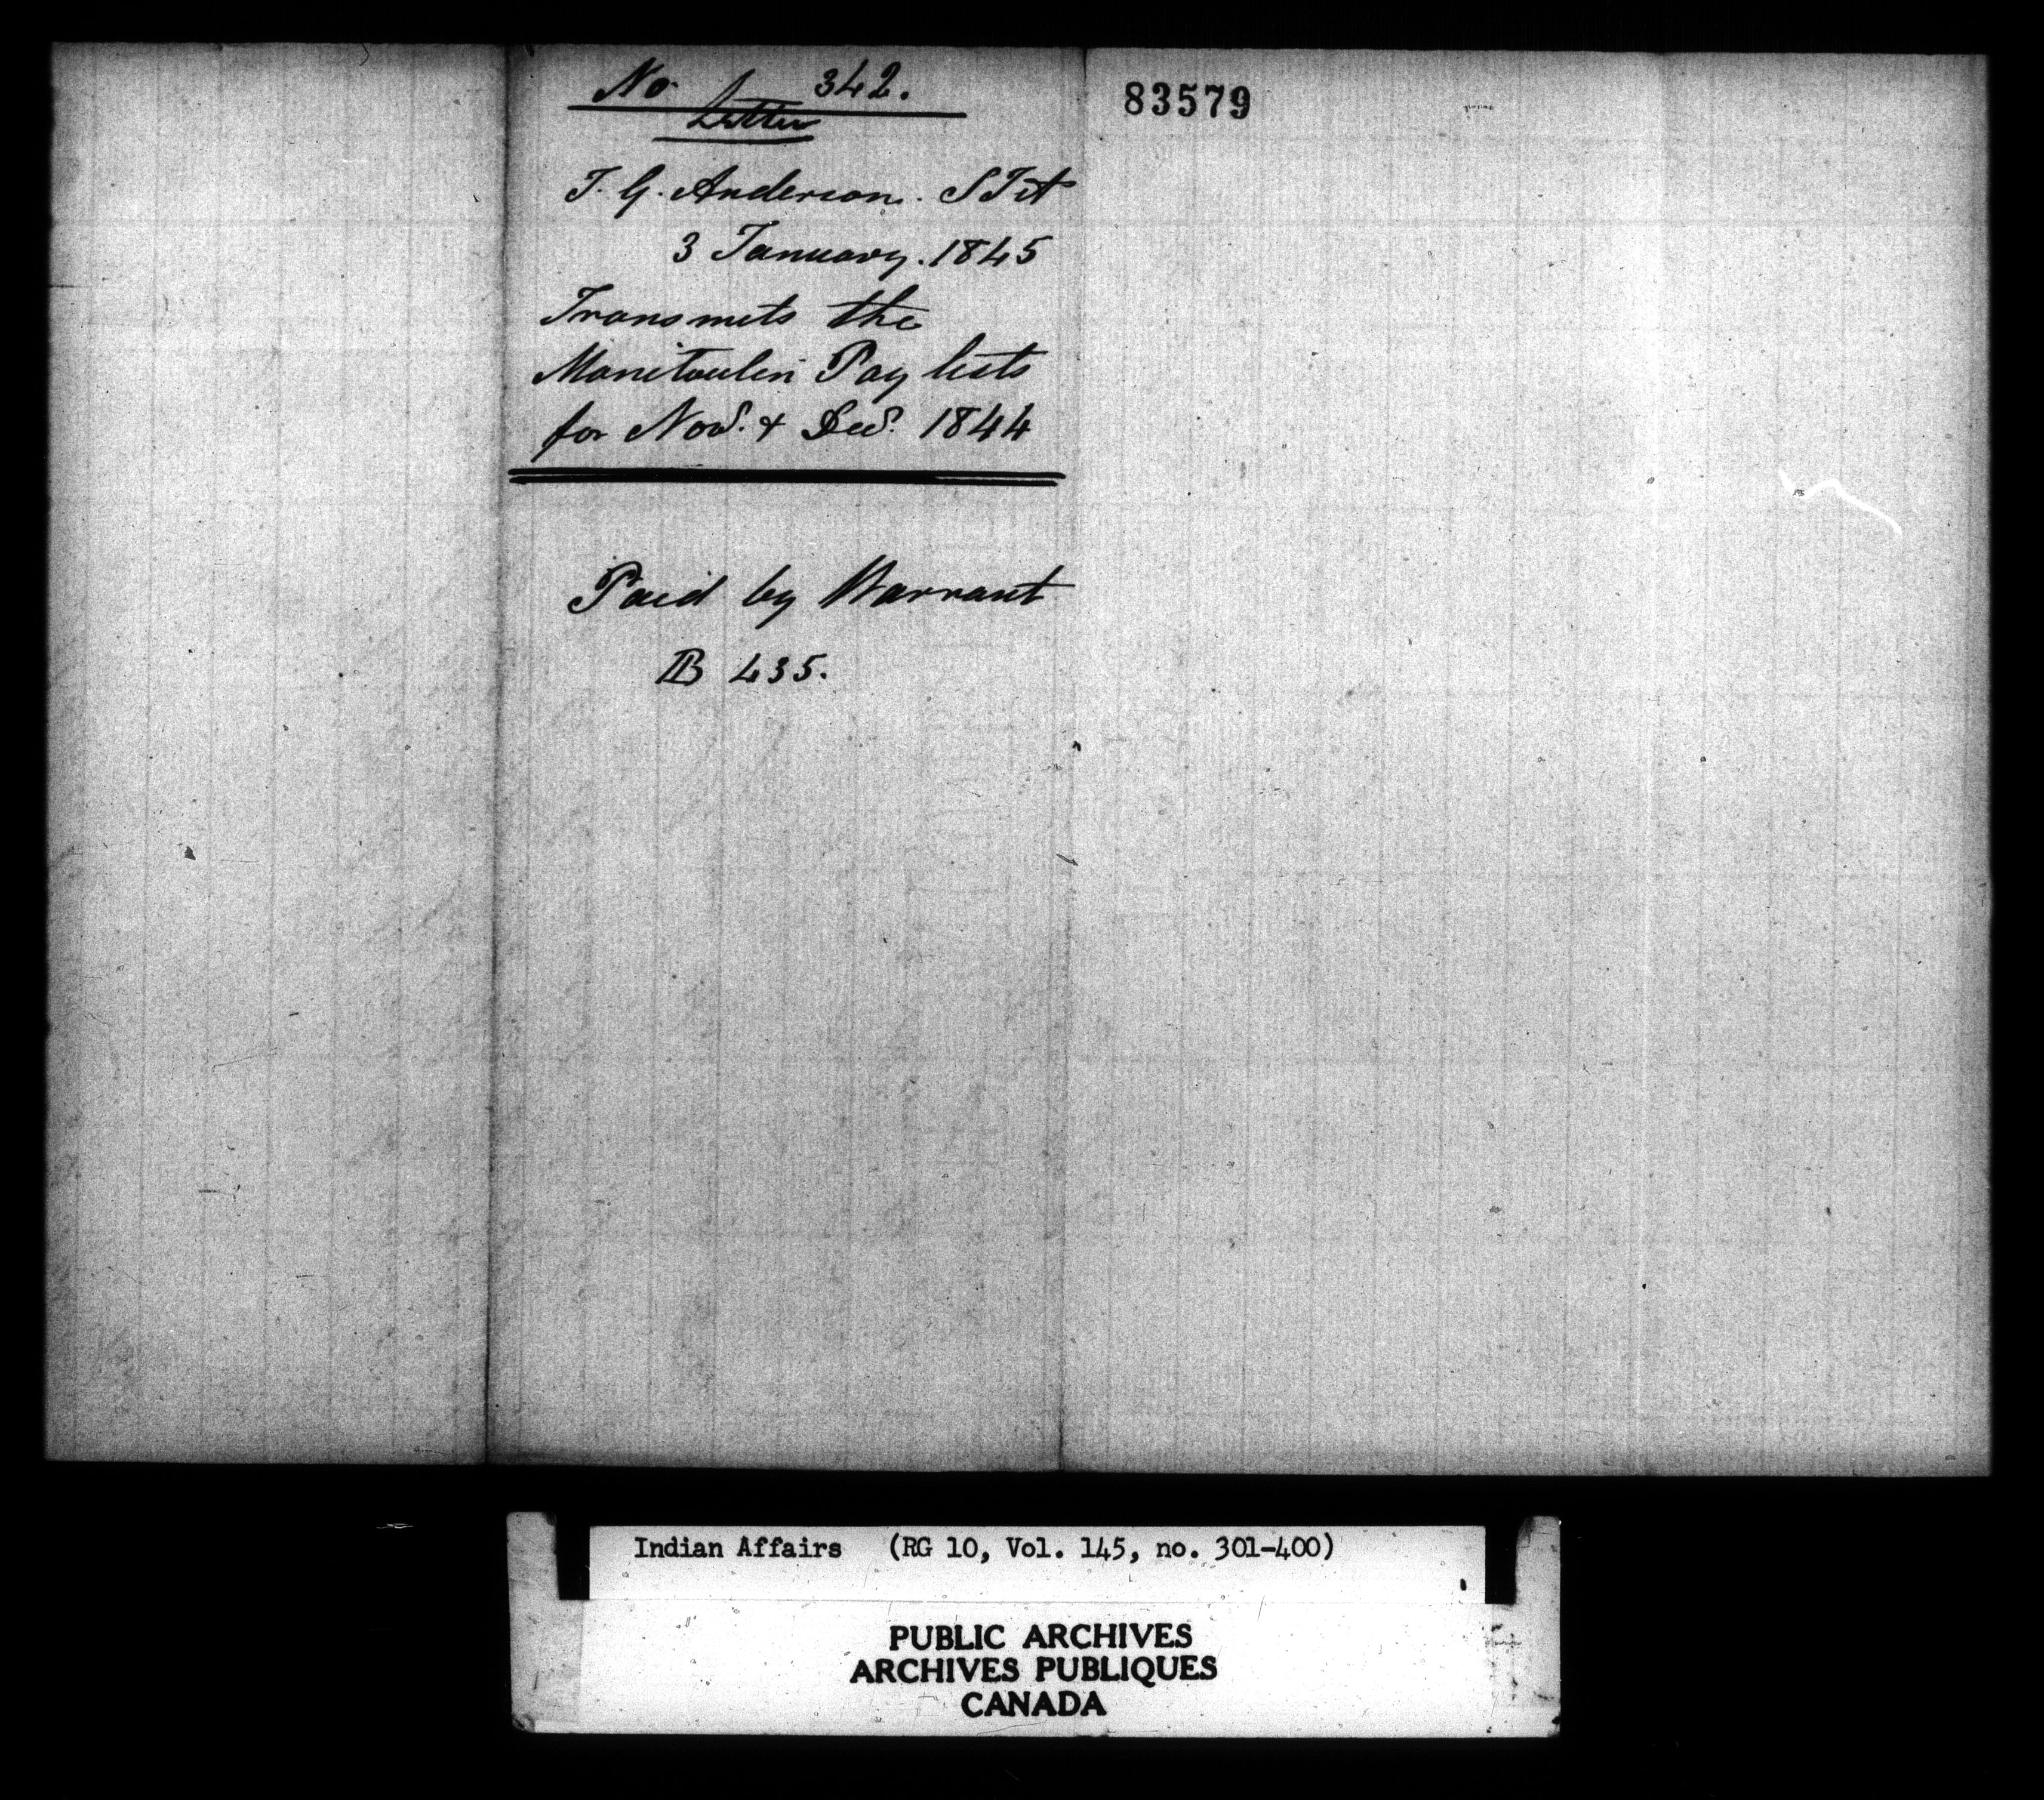 No 342.
Letter
T. G. Anderson. S I A
3 January. 1845
Transmits the
Manitoulin Pay lists
for Novr. & Decr. 1844
Paid by Warrant
B 435.
83579
Indian Affairs (RG 10, Vol. 145, no. 301-400)
PUBLIC ARCHIVES
ARCHIVES PUBLIQUES
CANADA